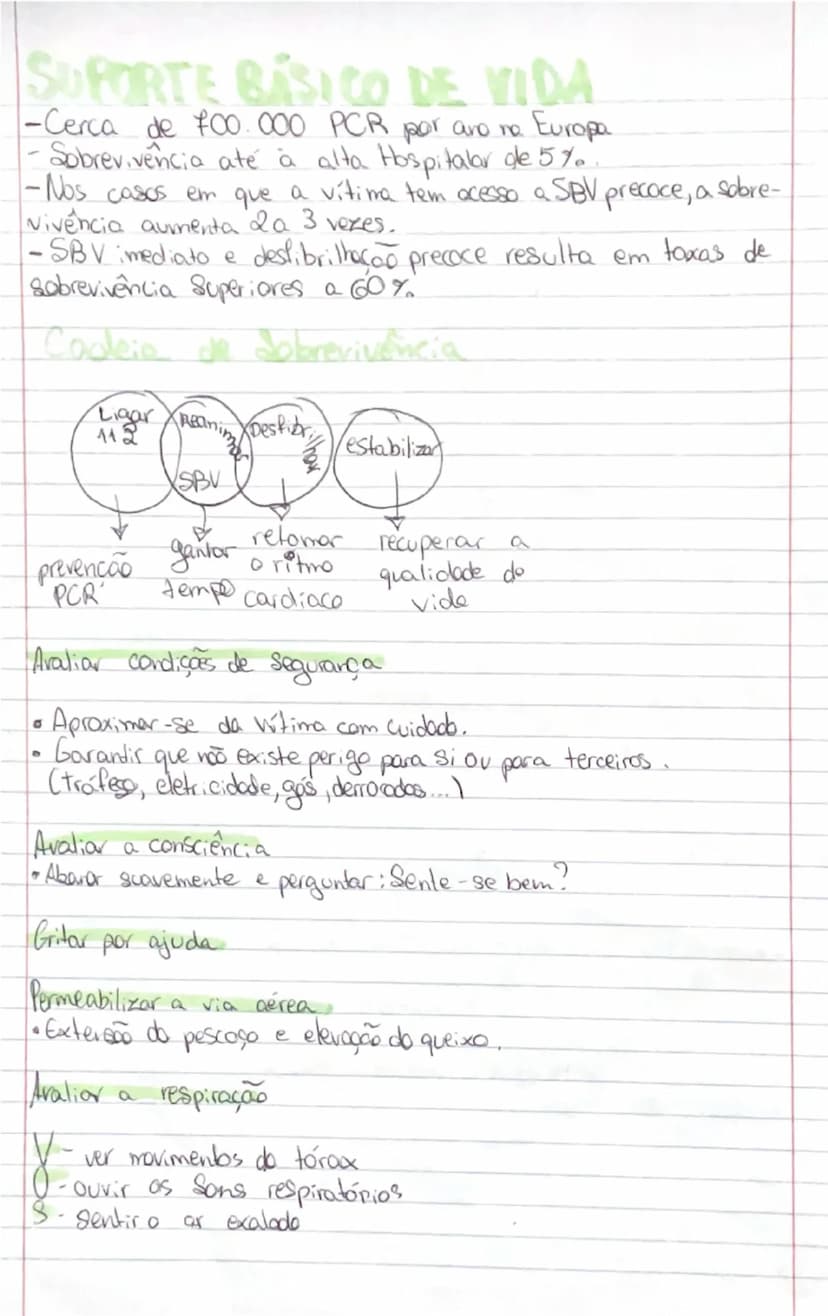 SUPORTE BÁSICO DE VIDA
-Cerca de 700.000 PCR por ano na Europa
- Sobrevivência até à alta Hospitalar de 5%.
-Nos casos em que a vítima tem acesso a SBV precoce, a sobre-
vivência aumenta 2 a 3 vezes.
- SBV imediato e desfibrilhação precoce resulta em taxas de
sobrevivência Superiores a 60%.
Cadeia de Sobrevivência
Ligar 112
Reanimar SBV
Desfibrilhar
estabilizar
prevenção PCR
ganhar tempo
retomar o ritmo cardíaco
recuperar a qualidade de vida
Avaliar condições de Segurança
• Aproximar-se da vítima com cuidado.
• Garantir que não existe perigo para si ou para terceiros.
(tráfego, eletricidade, gás, derrocadas...)
Avaliar a consciência
• Abanar suavemente e perguntar: Sente-se bem?
Gritar por ajuda
Permeabilizar a via aérea
• Extensão do pescoço e elevação do queixo.
Avaliar a respiração
V - ver movimentos do tórax
O - ouvir os Sons respiratórios
S - sentir o ar exalado